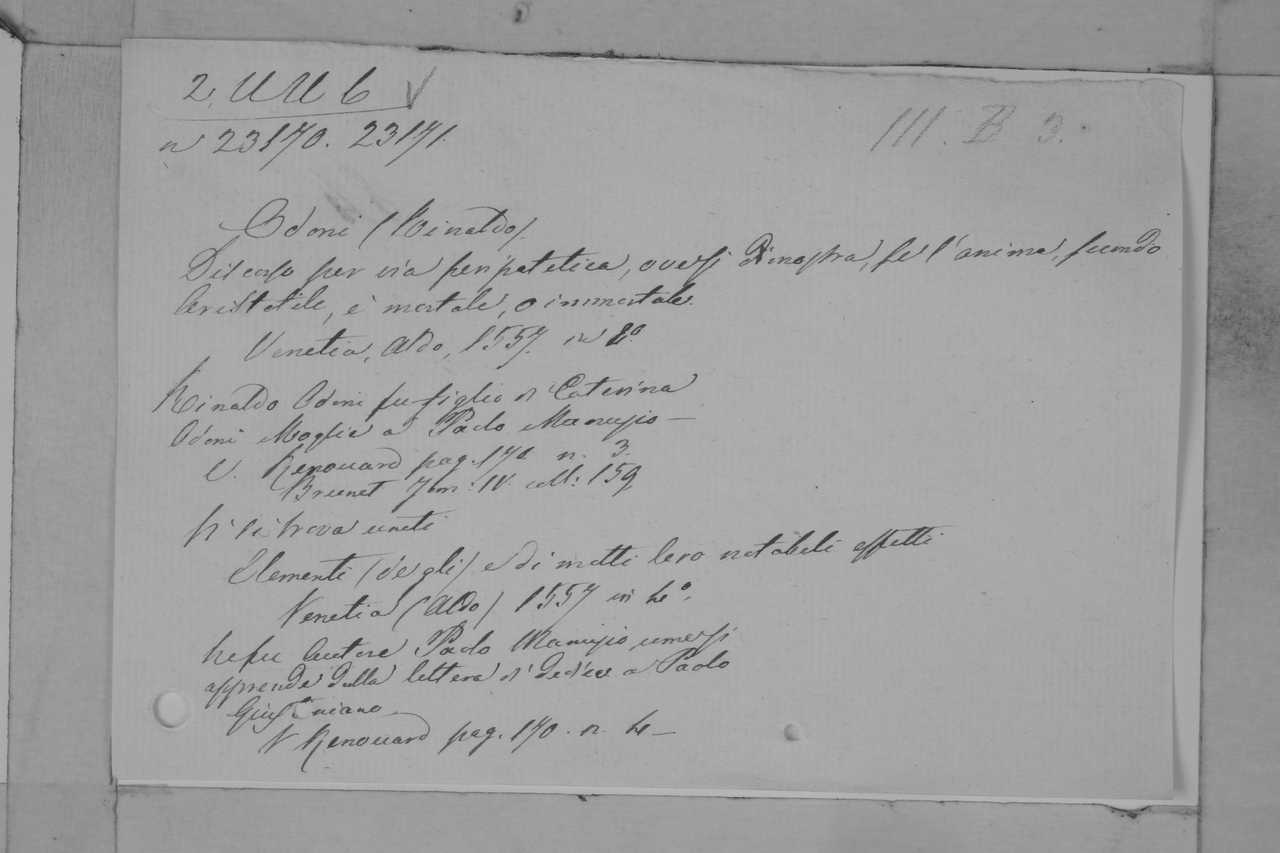 2. UU 6 V
III. B 3.
n 23170. 23171.
Odoni (Rinaldo).
Discorso per via peripatetica, ove si dimostra, se l'anima, secondo
Aristotile, è mortale, o immortale.
Venetia, Aldo, 1557. in 4º
Rinaldo Odoni fu figlio di Caterina
Odoni Moglie a Paolo Manuzio —
V. Renouard pag. 170 n. 3.
Brunet Tom. IV. coll: 159
Vi si trova uniti
Elementi (degli) e di molti loro notabili effetti
Venetia (Aldo) 1557 in 4º.
Ne fu Autore Paolo Manuzio, come si
apprende dalla lettera di dedica a Paolo
Giustiniano
V Renouard pag. 170. n. 4 —